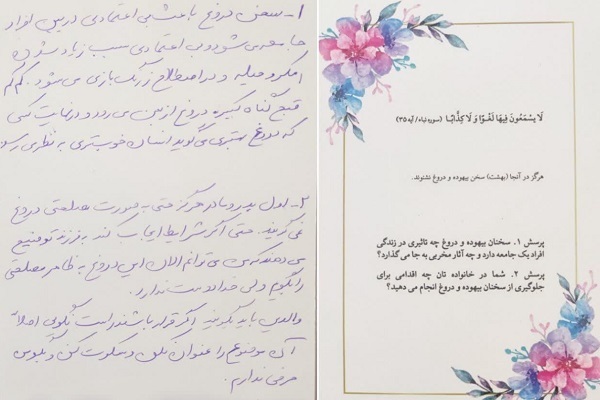 لَا يَسْمَعُونَ فِيهَا لَغْوًا وَ لَا كِذَّابًا (سوره نباء/ آیه ۳۵)
هرگز در آنجا (بهشت) سخن بیهوده و دروغ نشنوند.
پرسش ۱. سخنان بیهوده و دروغ چه تاثیری در زندگی
افراد یک جامعه دارد و چه آثار مخربی به جا می گذارد؟
پرسش ۲. شما در خانواده تان چه اقدامی برای
جلوگیری از سخنان بیهوده و دروغ انجام می دهید؟
۱- سخن دروغ باعث بی اعتمادی در بین افراد
جامعه می شود و بی اعتمادی سبب زیاد شدن
مکر و حیله و در اصطلاح زرنگ بازی می شود. کم کم
قبح گناه کبیره دروغ از بین می رود و در نهایت کسی
که دروغ بیشتری می گوید انسان خوبتری به نظر می رسد
۲- اول پدر و مادر هرگز حتی به صورت مصلحتی دروغ
نمی گویند. حتی اگر شرایط ایجاب کند به فرزند توضیح
می دهند که من می توانم الان این دروغ به ظاهر مصلحتی
را بگویم ولی خدا دوست ندارد.
والدین باید بگویند اگر قرار باشد راست نگوی اصلاً
آن موضوع را عنوان نکن و سکوت کن و بگو من
حرفی ندارم.